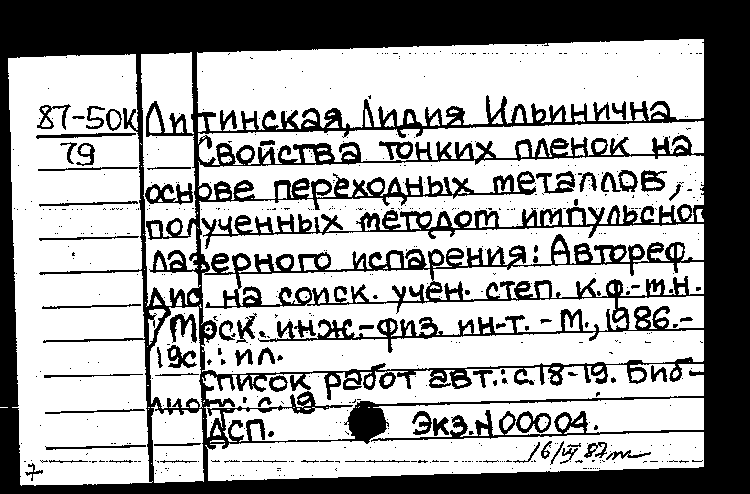 87-50К Литинская, Лидия Ильинична
79 Свойства тонких пленок на
основе переходных металлов,
полученных методом импульсног
лазерного испарения: Автореф.
дис. на соиск. учен. степ. к.ф.-м.н.
/Моск. инж.-физ. ин-т. - М., 1986.-
19с.: ил.
Список работ авт.: с.18-19. Биб-
лиогр.: с. 19
ДСП. Экз.N 00004.
16/VI 87